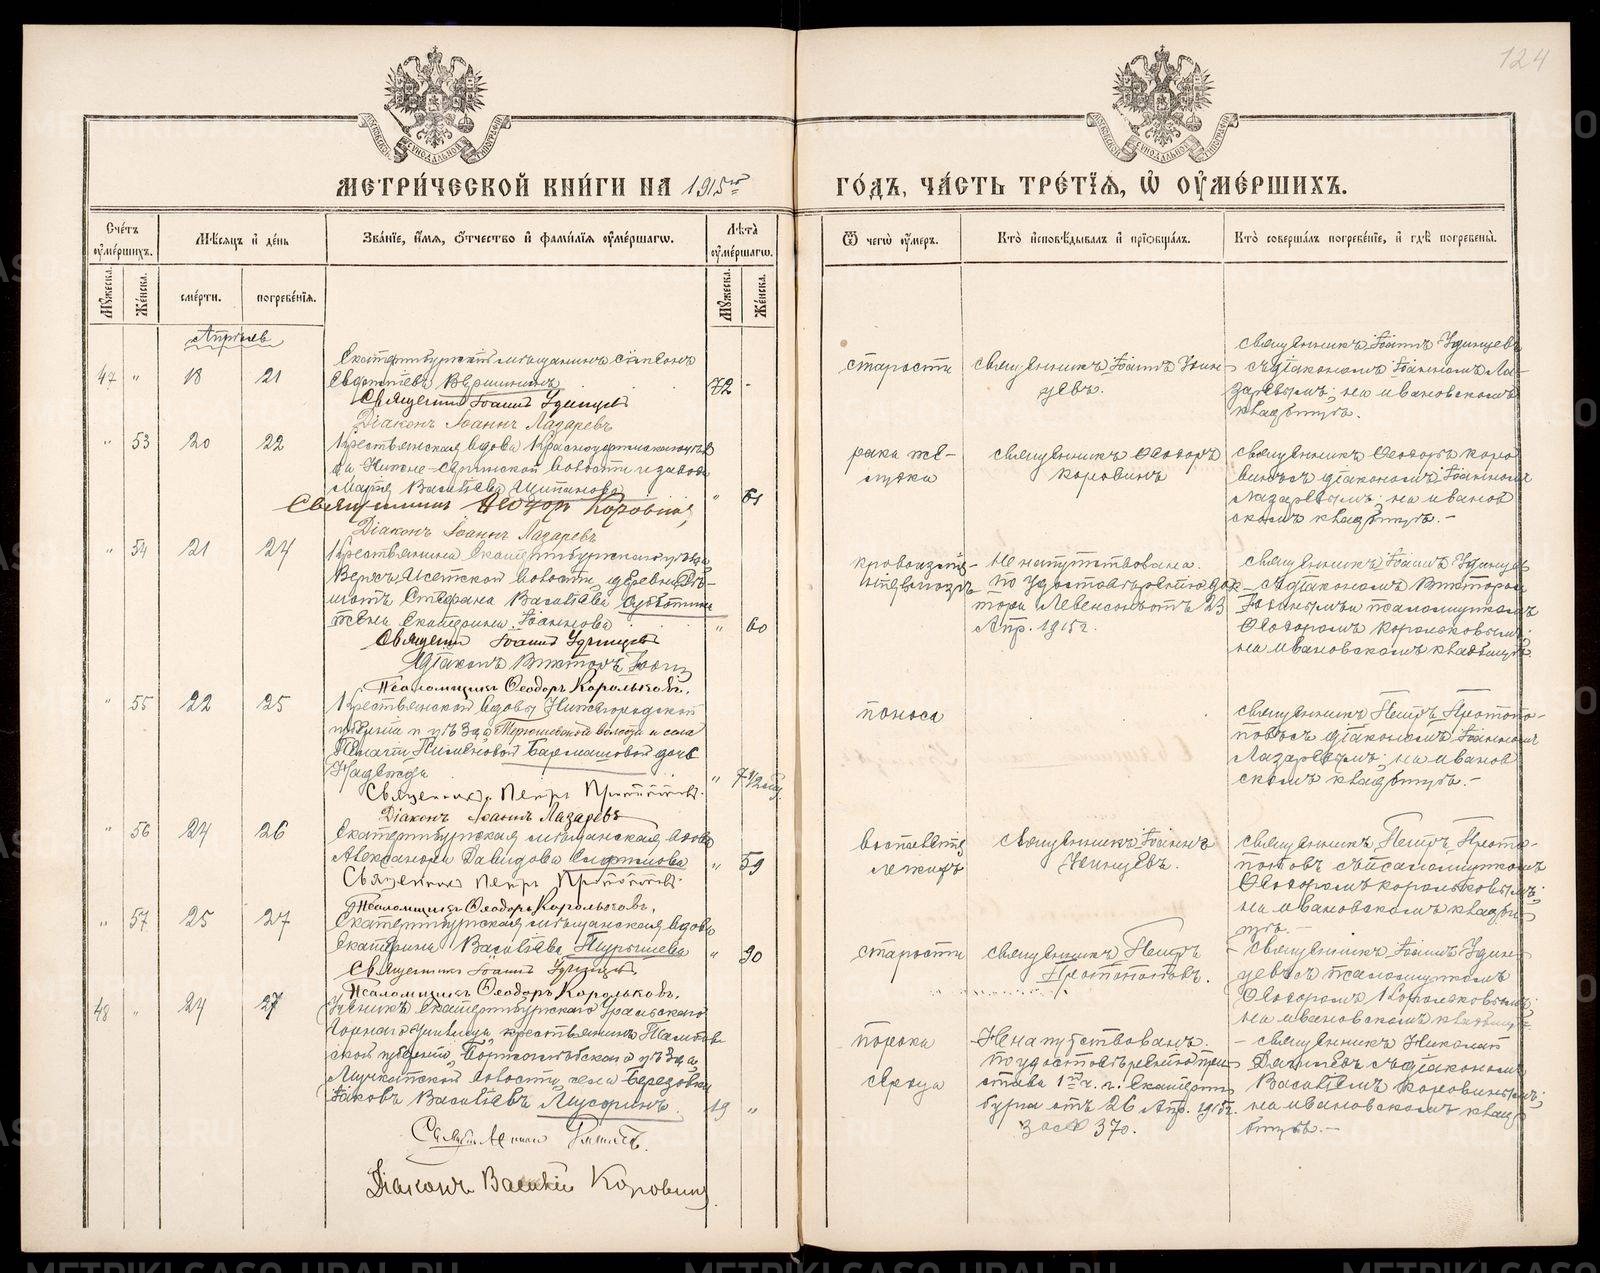 124
МЕТРИ́ЧЕСКОЙ КНИ́ГИ НА 1915й
ГО́ДЪ, ЧА́СТЬ ТРЕ́ТЇѦ, Ѡ҆ ОУ҆МЕ́РШИХЪ.
Сче́тъ оу҆ме́ршихъ.
Мѣ́сѧцъ и҆ де́нь
Зва́нїе, и҆́мѧ, ѻ҆́тчество и҆ фами́лїѧ оу҆ме́ршагѡ.
Лѣ́та оу҆ме́ршагѡ.
Ѿ чегѡ̀ оу҆́меръ.
Кто̀ и҆сповѣ́дывалъ и҆ прїѡбща́лъ.
Кто̀ соверша́лъ погребе́нїе, и҆ гдѣ̀ погребены̀.
Мꙋ́жеска.
Же́нска.
сме́рти.
погребе́нїѧ.
Мꙋ́жеска.
Же́нска.
Апрѣль
47 " 18 21
Екатеринбургскій мѣщанинъ Симеонъ
Евфиміевъ Вершининъ
72 -
Священникъ Іоаннъ Удинцевъ
Діаконъ Іоаннъ Лазаревъ
старости
священникъ Іоаннъ Удин-
цевъ.
священникъ Іоаннъ Удинцевъ
съ діакономъ Іоанномъ Ла-
заревымъ; на ивановскомъ
кладбищѣ.
" 53 20 22
Крестьянская вдова Красноуфимскаго уѣз
да Нижне-Сергинской волости и завода
Марія Васильева Щипанова
" 61
Священникъ Ѳеодоръ Коровинъ
Діаконъ Іоаннъ Лазаревъ
рака же-
лудка
священникъ Ѳеодоръ
Коровинъ
священникъ Ѳеодоръ Коро
винъ съ діакономъ Іоанномъ
Лазаревымъ; на иванов
скомъ кладбищѣ. -
" 54 21 24
Крестьянина Екатеринбургскаго уѣзда,
Верхъ-Исетской волости, деревни
Стефана Васильева Субботина
жена Екатерина Іоаннова
" 60
Священникъ Іоаннъ Удинцевъ
Діаконъ Викторъ
Псаломщикъ Ѳеодоръ Корольковъ.
кровоизлія-
Не напутствована.
по удостовѣренію док-
тора Левенсонъ отъ 23
Апр. 1915 г.
священникъ Іоаннъ Удинцевъ
съ діакономъ Викторомъ
и псаломщикомъ
Ѳеодоромъ Корольковымъ;
на ивановскомъ кладбищѣ.
" 55 22 25
Крестьянской вдовы Нижегородской
губерніи и уѣзда, волости и села
Пелагіи Пименовой Бармашовой дочь
Надежда
" 7 1/2 мѣс.
Священникъ Петръ Протопоповъ.
Діаконъ Іоаннъ Лазаревъ
поноса
священникъ Петръ Протопо-
повъ съ діакономъ Іоанномъ
Лазаревымъ; на иванов
скомъ кладбищѣ. -
" 56 24 26
Екатеринбургская мѣщанская вдова
Александра Давидова
" 59
Священникъ Петръ Протопоповъ.
Псаломщикъ Ѳеодоръ Корольковъ.
воспаленія
легкихъ
священникъ Іоаннъ
Удинцевъ.
священникъ Петръ Прото-
поповъ съ псаломщикомъ
Ѳеодоромъ Корольковымъ;
на ивановскомъ кладби-
щѣ. -
" 57 25 27
Екатеринбургская мѣщанская вдова
Екатерина Васильева
" 90
Священникъ Іоаннъ Удинцевъ
Псаломщикъ Ѳеодоръ Корольковъ.
старости
священникъ Петръ
Протопоповъ.
священникъ Іоаннъ Удин-
цевъ съ псаломщикомъ
Ѳеодоромъ Корольковымъ;
на ивановскомъ кладбищѣ.
48 " 24 27
Ученикъ Екатеринбургскаго Уральскаго
Горнаго Училища, крестьянинъ Тамбов
ской губерніи, Борисоглѣбскаго уѣзда,
Мучкапской волости, села Березовки
Іаковъ Васильевъ
19 "
Діаконъ Василій Коровинъ
порока
сердца
Не напутствованъ.
по удостовѣренію при-
става 1й ч. г. Екатерин-
бурга отъ 26 Апр. 1915 г.
за № 370.
священникъ Николай
съ діакономъ
Василіемъ Коровинымъ;
на ивановскомъ клад-
бищѣ. -
METRIKI.GASO-URAL.RU